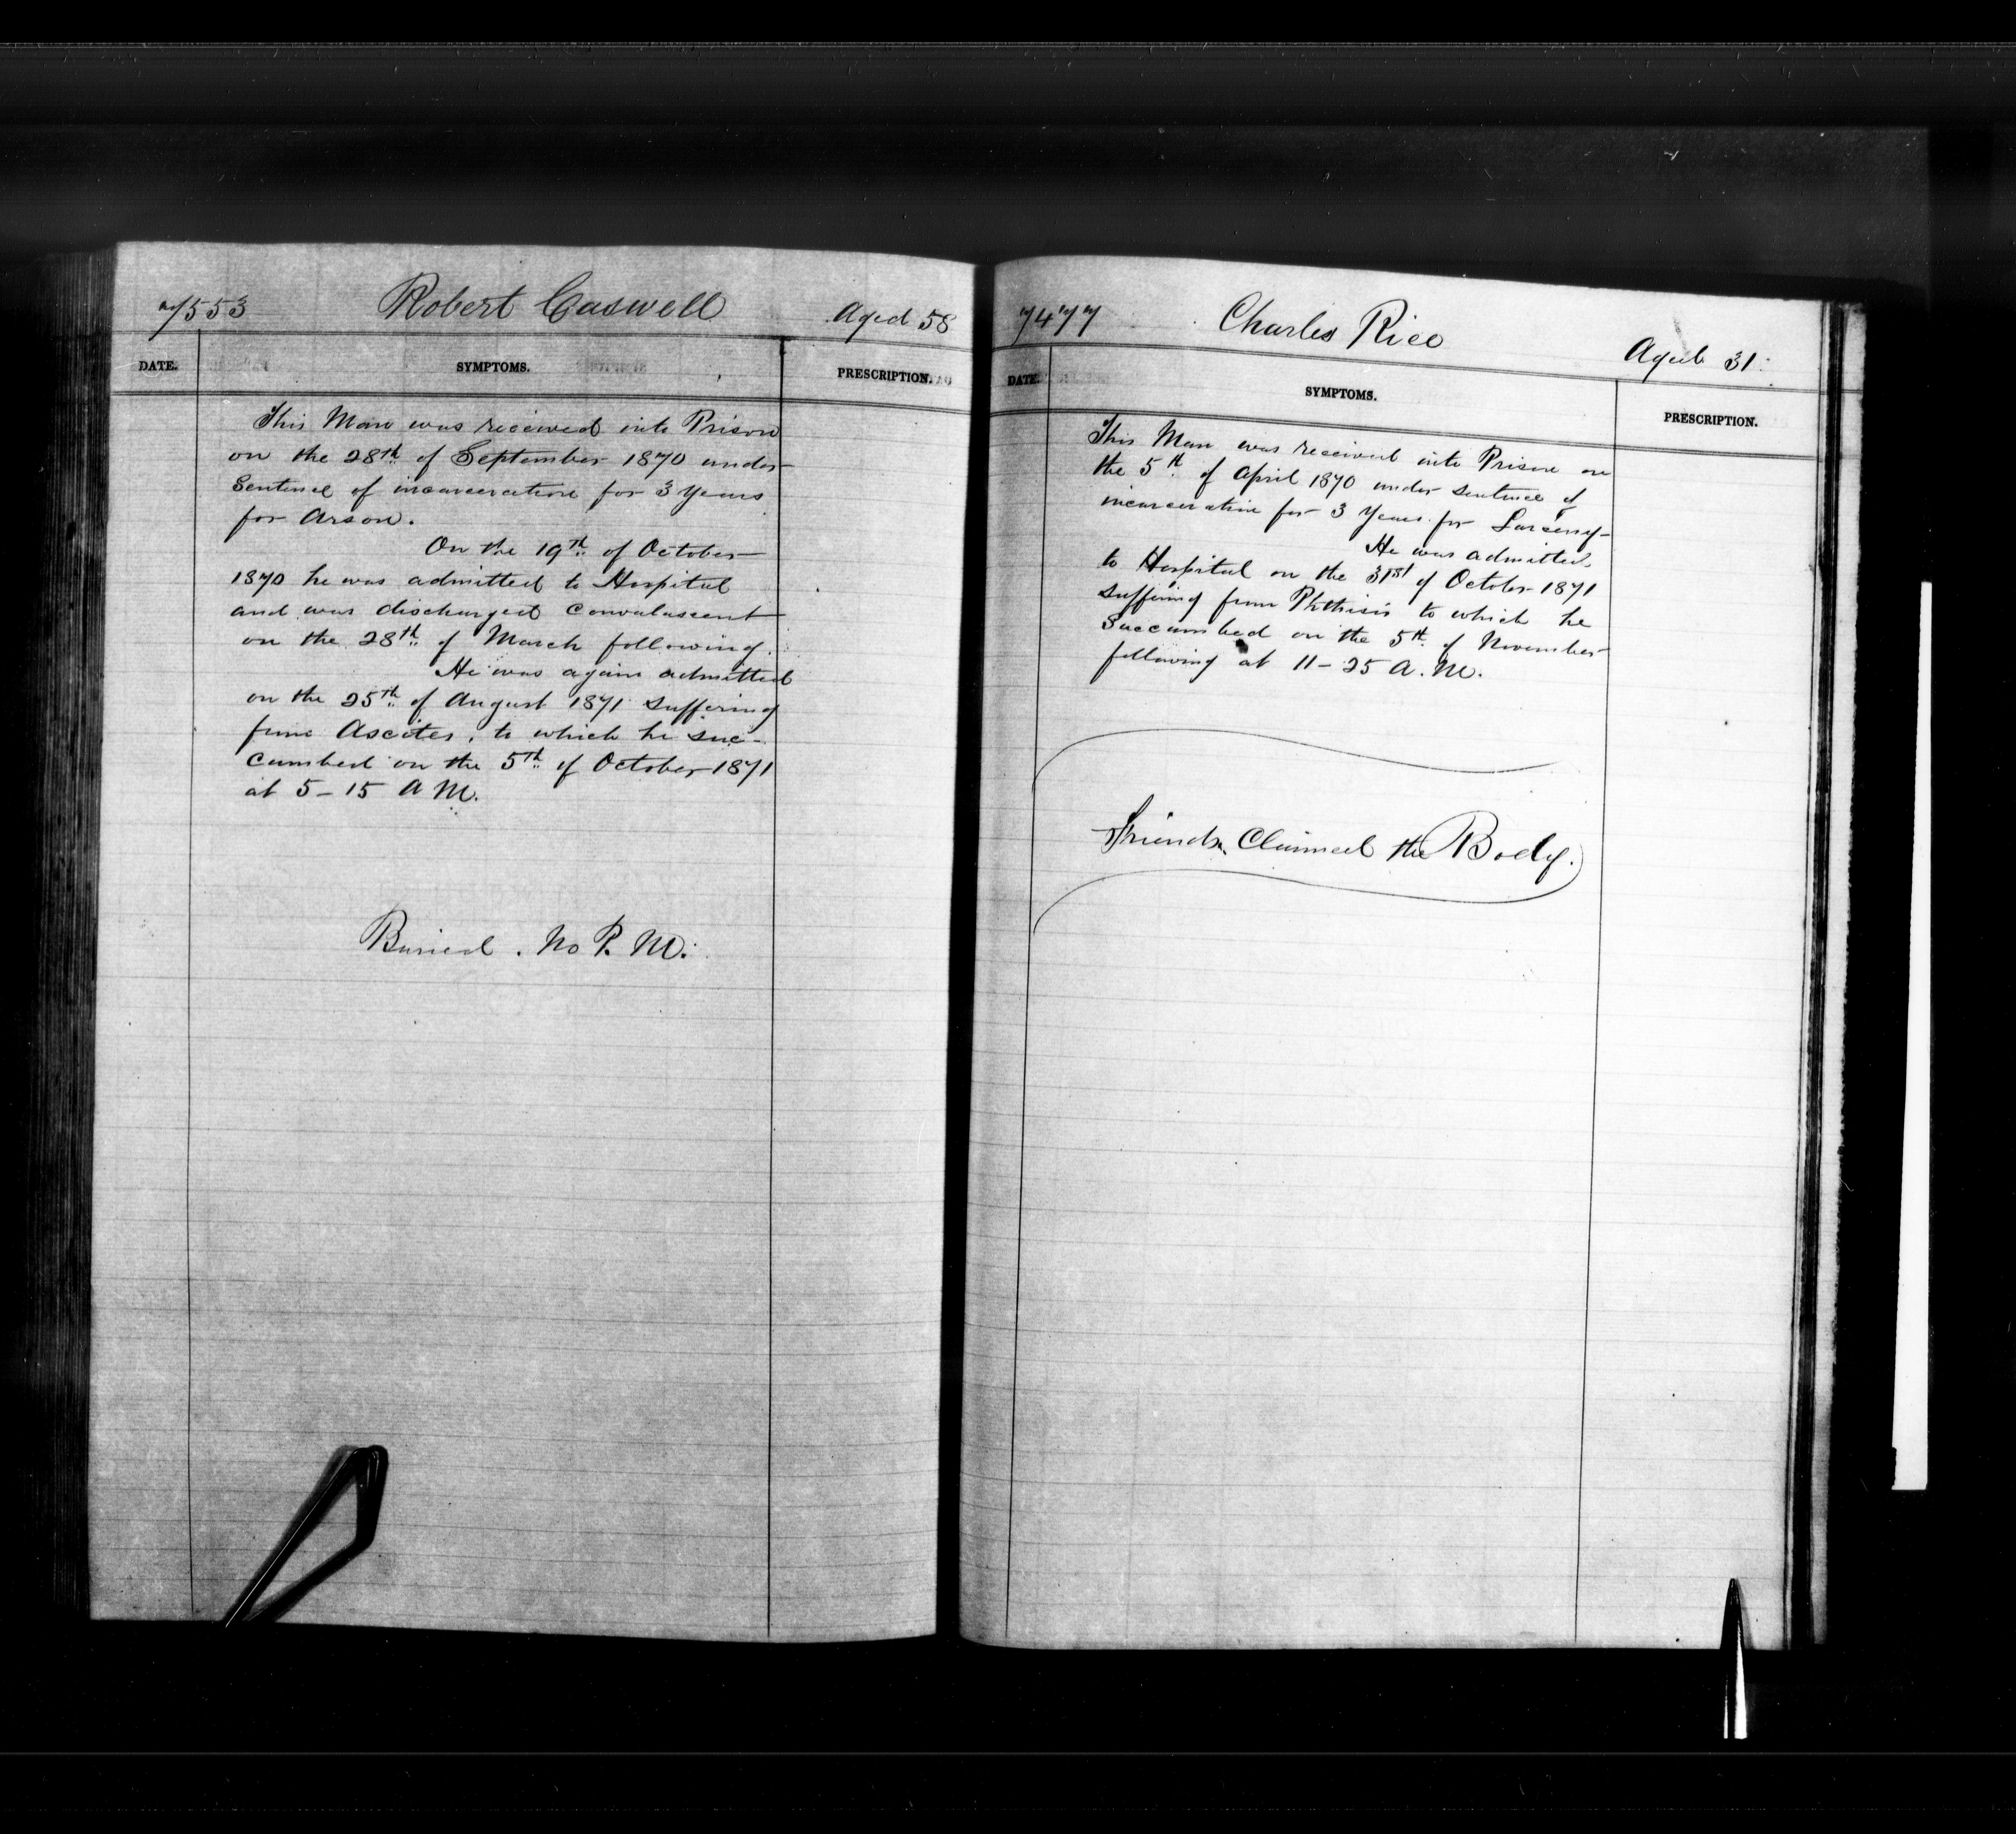 7553 Robert Caswell Aged 58
DATE. SYMPTOMS. PRESCRIPTION.
This Man was received into Prison
on the 28th of September 1870 under
Sentence of incarceration for 3 Years
for Arson.
On the 19th of October
1870 he was admitted to Hospital
and was discharged Convalascent
on the 28th of March following.
He was again admitted
on the 25th of August 1871 suffering
from Ascites, to which he suc-
cumbed on the 5th of October 1871
at 5-15 A M.
Buried. No P. M.
7477 Charles Rice Aged 31
DATE. SYMPTOMS. PRESCRIPTION.
This Man was received into Prison on
the 5th of April 1870 under sentence of
incarceration for 3 Years for Larceny-
He was admitted
to Hospital on the 31st of October 1871
suffering from Phthisis to which he
Succumbed on the 5th of November
following at 11-25 A.M.
Friends Claimed the Body.